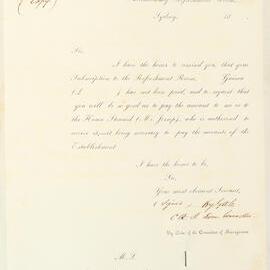 (Copy)
Parliamentary Refreshment Room,
Sydney, 18
Sir,
I have the honor to remind you that your
Subscription to the Refreshment Room, Guinea
(£ ) has not been paid, and to request that
you will be so good as to pay the amount to me or to
the House Steward (Mr. ), who is authorised to
receive it, it being necessary to pay the accounts of the
Establishment.
I have the honor to be,
Sir,
Your most obedient Servant,
(Signed
By Order of the Committee of Management
M. L.